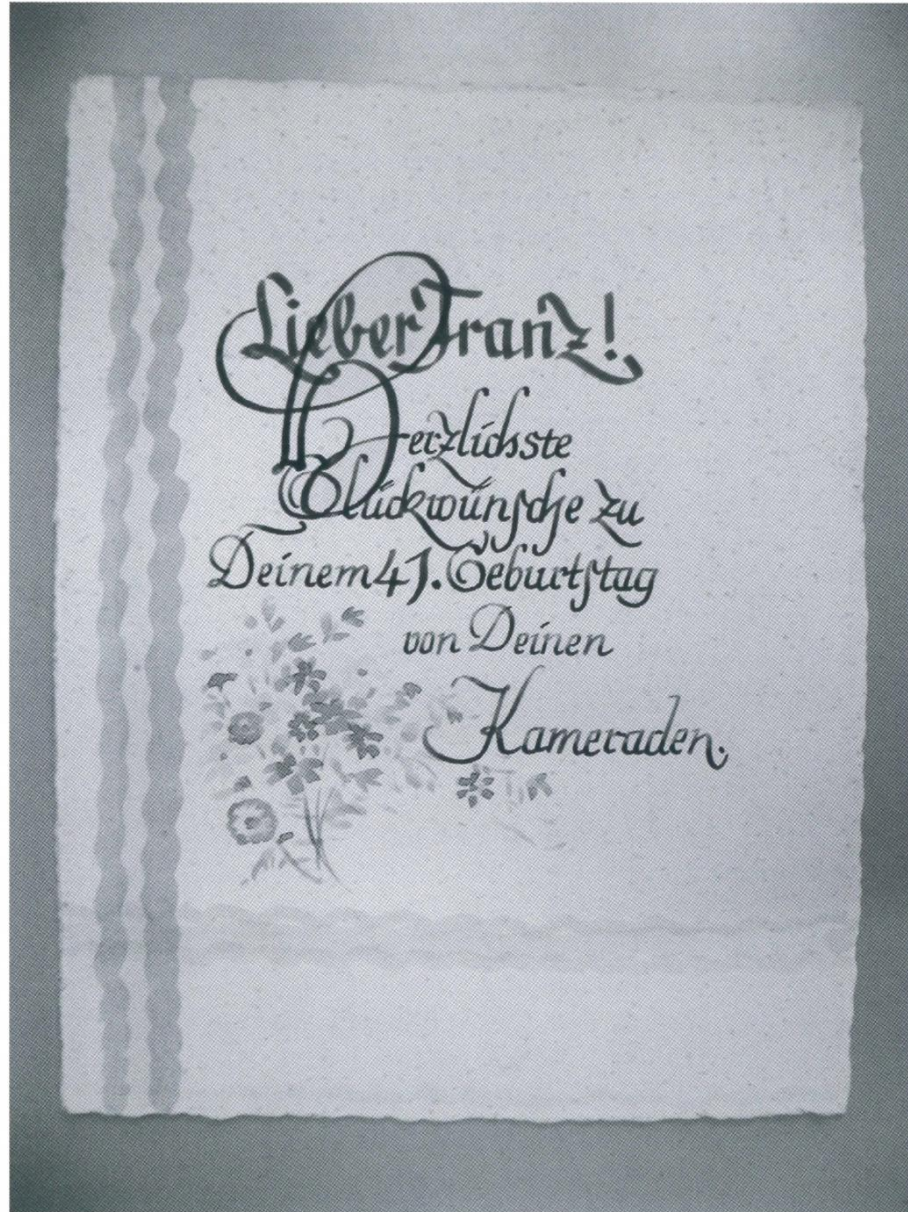 Lieber Franz!
Herzlichste
Glückwünsche zu
Deinem 41. Geburtstag
von Deinen
Kameraden.